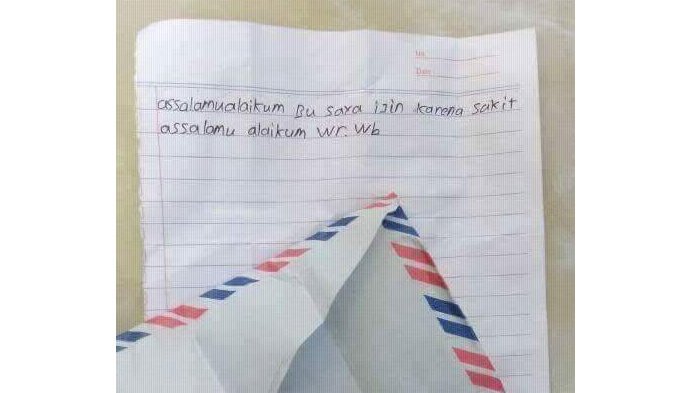 No.
Date:
assalamualaikum Bu saya izin karena sakit
assalamu alaikum wr. wb